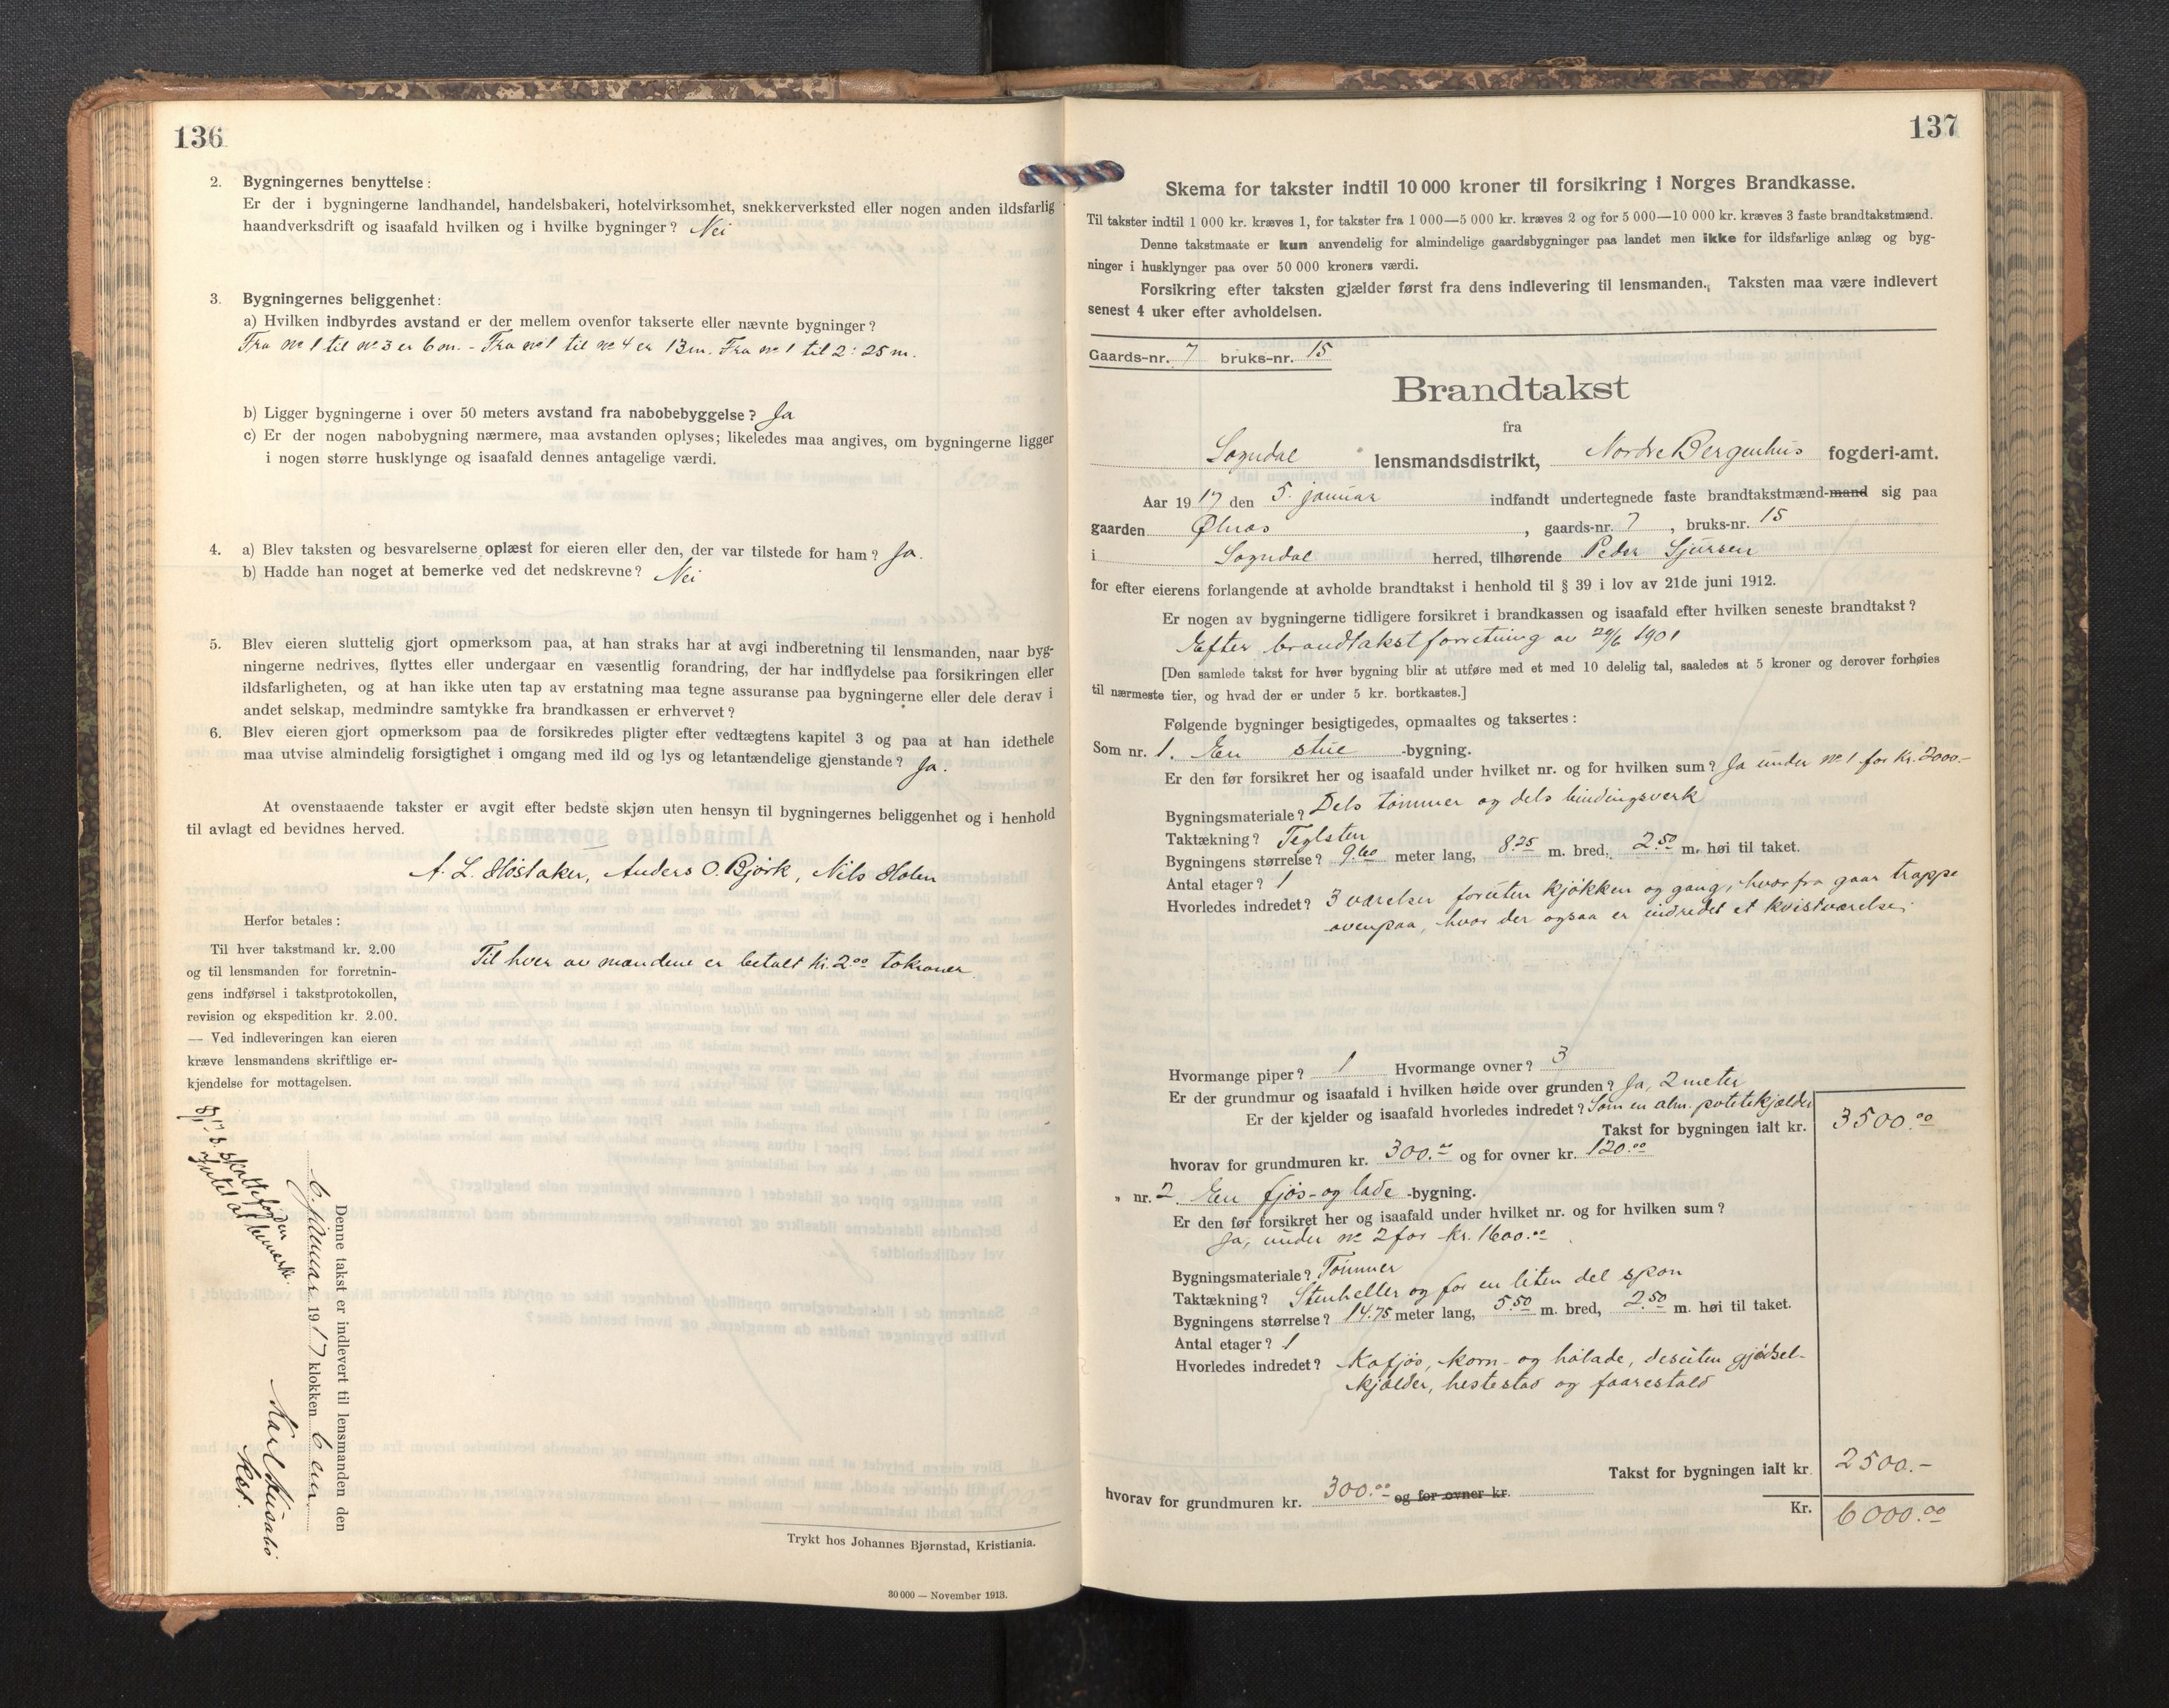 136
2. Bygningernes benyttelse:
Er der i bygningerne landhandel, handelsbakeri, hotelvirksomhet, snekkerverksted eller nogen anden ildsfarlig
haandverksdrift og isaafald hvilken og i hvilke bygninger? Nei
3. Bygningernes beliggenhet:
a) Hvilken indbyrdes avstand er der mellem ovenfor takserte eller nævnte bygninger?
Fra nr 1 til nr 3 er 6 m. - Fra nr 1 til nr 4 er 13 m. Fra nr 1 til 2: 25 m.
b) Ligger bygningerne i over 50 meters avstand fra nabobebyggelse? Ja
c) Er der nogen nabobygning nærmere, maa avstanden oplyses; likeledes maa angives, om bygningerne ligger
i nogen større husklynge og isaafald dennes antagelige værdi.
4. a) Blev taksten og besvarelserne oplæst for eieren eller den, der var tilstede for ham? Ja.
b) Hadde han noget at bemerke ved det nedskrevne? Nei
5. Blev eieren sluttelig gjort opmerksom paa, at han straks har at avgi indberetning til lensmanden, naar byg-
ningerne nedrives, flyttes eller undergaar en væsentlig forandring, der har indflydelse paa forsikringen eller
ildsfarligheten, og at han ikke uten tap av erstatning maa tegne assuranse paa bygningerne eller dele derav i
andet selskap, medmindre samtykke fra brandkassen er erhvervet?
6. Blev eieren gjort opmerksom paa de forsikredes pligter efter vedtægtens kapitel 3 og paa at han idethele
maa utvise almindelig forsigtighet i omgang med ild og lys og letantændelige gjenstande? Ja.
At ovenstaaende takster er avgit efter bedste skjøn uten hensyn til bygningernes beliggenhet og i henhold
til avlagt ed bevidnes herved.
A. L. Høstaker, Anders O. Bjørk, Nils Holen
Herfor betales:
Til hver takstmand kr. 2.00
og til lensmanden for forretnin-
gens indførsel i takstprotokollen,
revision og ekspedition kr. 2.00.
— Ved indleveringen kan eieren
kræve lensmandens skriftlige er-
kjendelse for mottagelsen.
Til hver av mændene er betalt kr. 2.00 tokroner
Denne takst er indlevert til lensmanden den
6. januar 1917 klokken 6 em.
Karl Husabø
kst.
skattefogden
intet at bemerke.
Trykt hos Johannes Bjørnstad, Kristiania.
30 000 — November 1913.
137
Skema for takster indtil 10 000 kroner til forsikring i Norges Brandkasse.
Til takster indtil 1 000 kr. kræves 1, for takster fra 1 000—5 000 kr. kræves 2 og for 5 000—10 000 kr. kræves 3 faste brandtakstmænd.
Denne takstmaate er kun anvendelig for almindelige gaardsbygninger paa landet men ikke for ildsfarlige anlæg og byg-
ninger i husklynger paa over 50 000 kroners værdi.
Forsikring efter taksten gjælder først fra dens indlevering til lensmanden. Taksten maa være indlevert
senest 4 uker efter avholdelsen.
Gaards-nr. 7 bruks-nr. 15
Brandtakst
fra
Sogndal lensmandsdistrikt, Nordre Bergenhus fogderi-amt.
Aar 1917 den 5. januar indfandt undertegnede faste brandtakstmænd-mand sig paa
gaarden Ølnæs, gaards-nr. 7, bruks-nr. 15
i Sogndal herred, tilhørende Peder Sjursen
for efter eierens forlangende at avholde brandtakst i henhold til § 39 i lov av 21de juni 1912.
Er nogen av bygningerne tidligere forsikret i brandkassen og isaafald efter hvilken seneste brandtakst?
Efter brandtakstforretning av 29/6 1901
[Den samlede takst for hver bygning blir at utføre med et med 10 delelig tal, saaledes at 5 kroner og derover forhøies
til nærmeste tier, og hvad der er under 5 kr. bortkastes.]
Følgende bygninger besigtigedes, opmaaltes og taksertes:
Som nr. 1. En stue -bygning.
Er den før forsikret her og isaafald under hvilket nr. og for hvilken sum? Ja under nr. 1 for kr. 2000.-
Bygningsmateriale? Dels tømmer og dels bindingsverk
Taktækning? Teglsten
Bygningens størrelse? 9.60 meter lang, 8.25 m. bred, 2.50 m. høi til taket.
Antal etager? 1
Hvorledes indredet? 3 værelser foruten kjøkken og gang, hvorfra gaar trappe
ovenpaa, hvor der ogsaa er indredet et kvistværelse.
Hvormange piper? 1 Hvormange ovner? 3
Er der grundmur og isaafald i hvilken høide over grunden? Ja, 2 meter
Er der kjelder og isaafald hvorledes indredet? Som en alm. potetekjælder
Takst for bygningen ialt kr. 3500.00
hvorav for grundmuren kr. 300.00 og for ovner kr. 120.00
" nr. 2. En fjøs- og lade -bygning.
Er den før forsikret her og isaafald under hvilket nr. og for hvilken sum?
Ja, under nr 2 for kr. 1600.00
Bygningsmateriale? Tømmer
Taktækning? Stenheller og for en liten del spon
Bygningens størrelse? 14.75 meter lang, 5.50 m. bred, 2.50 m. høi til taket.
Antal etager? 1
Hvorledes indredet? Kofjøs, korn- og hølade, desuten gjødsel-
kjælder, hestestad og faarestald
Takst for bygningen ialt kr. 2500.-
hvorav for grundmuren kr. 300.00 og for ovner kr.
Kr. 6000.00